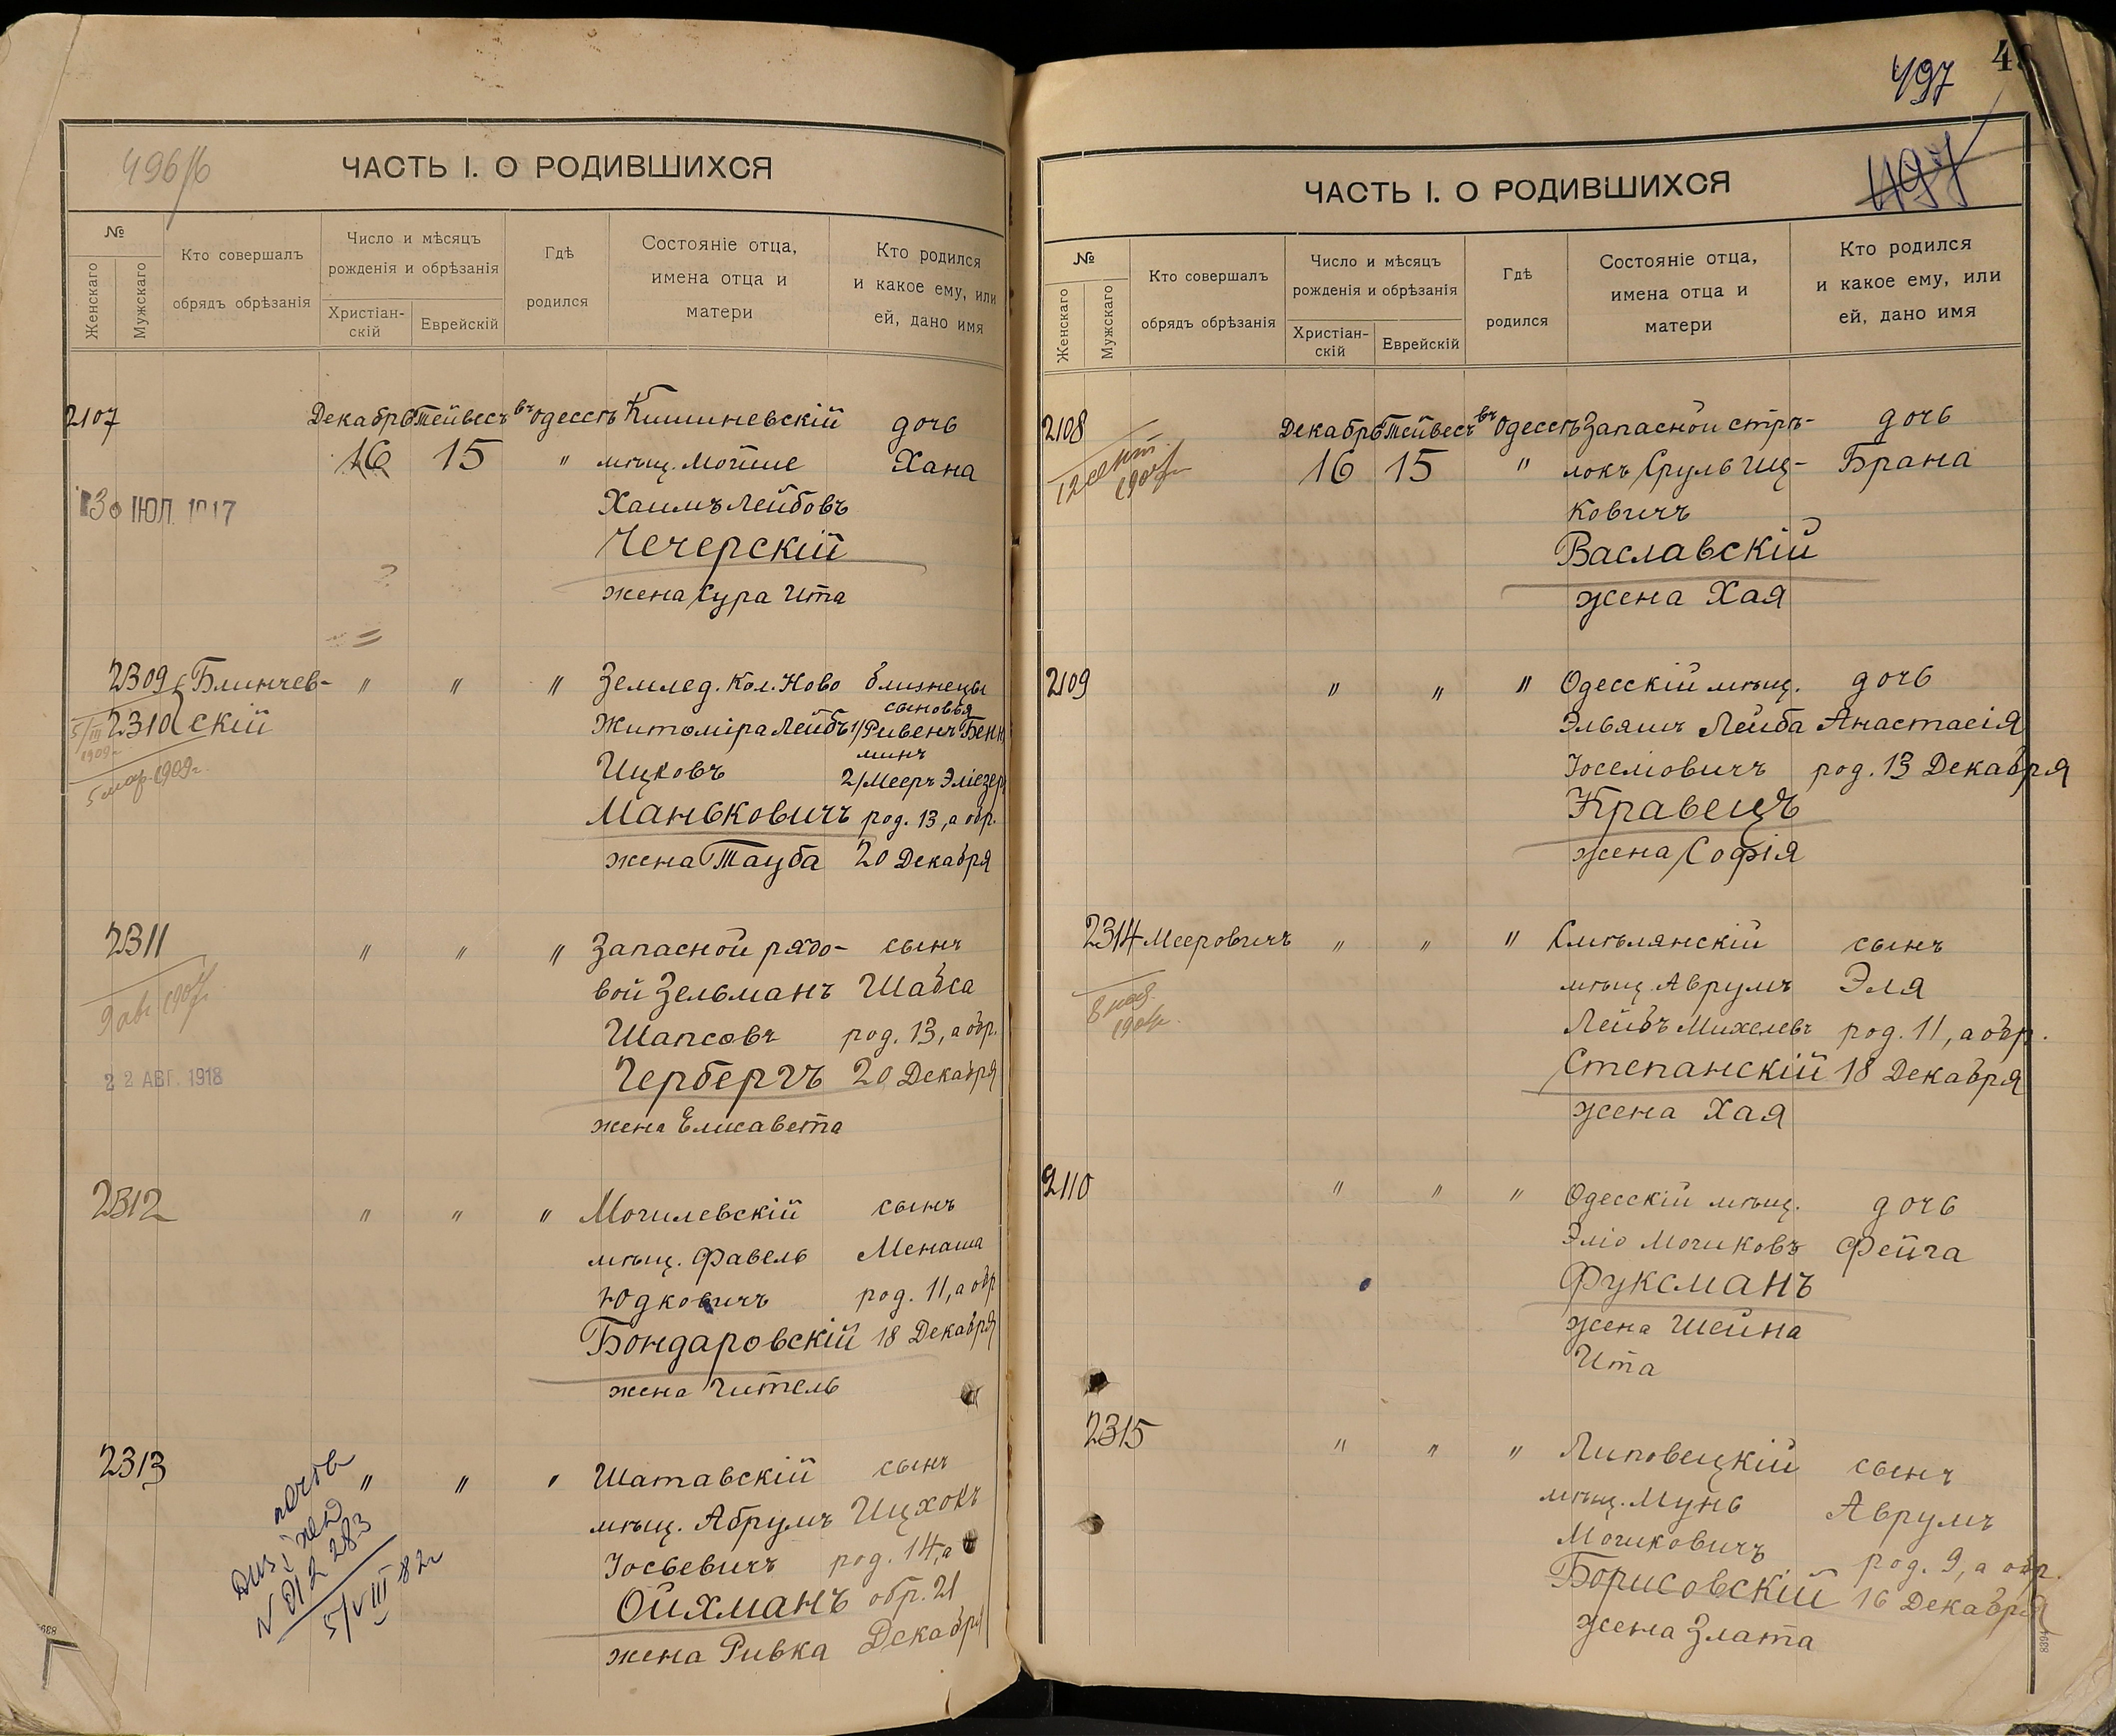 496/б
ЧАСТЬ I. О РОДИВШИХСЯ
№
Женскаго
Мужскаго
Кто совершалъ
обрядъ обрѣзанія
Число и мѣсяцъ
рожденія и обрѣзанія
Христіан-
скій
Еврейскій
Гдѣ
родился
Состояніе отца,
имена отца и
матери
Кто родился
и какое ему, или
ей, дано имя
2107 Декабрь Тейвесъ въ Одессѣ Кишиневскій дочь
16 15 " мѣщ. Мойше Хана
30 ІЮЛ. 1917
Хаимъ Лейбовъ
Чечерскій
жена Сура Ита
2309 Блинчев- " " " Землед. Кол. Ново близнецы
сыновья
2310 скій Житоміра Лейбъ 1/ Рувенъ Беня
5/III 1909г.
минъ
Ицковъ 2/ Мееръ Эліезеръ
5 мар. 1909г.
Маньковичъ род. 13, а обр.
жена Тауба 20 Декабря
2311 " " " Запасной рядо- сынъ
вой Зельманъ Шабса
Шапсовъ род. 13, а обр.
Чербергъ 20 Декабря
22 АВГ. 1918
жена Елисавета
2312 " " " Могилевскій сынъ
мѣщ. Фавель Менаша
Юдковичъ род. 11, а обр
Бондаровскій 18 Декабря
жена Читель
2313 " " " Шатавскій сынъ
мѣщ. Абрумъ Ицхокъ
Іосьевичъ род. 14, а
Ойхманъ обр. 21
жена Ривка Декабря
5/VIII 82г
497
497
ЧАСТЬ I. О РОДИВШИХСЯ
№
Женскаго
Мужскаго
Кто совершалъ
обрядъ обрѣзанія
Число и мѣсяцъ
рожденія и обрѣзанія
Христіан-
скій
Еврейскій
Гдѣ
родился
Состояніе отца,
имена отца и
матери
Кто родился
и какое ему, или
ей, дано имя
2108 Декабрь Тейвесъ въ Одессѣ Запасной стрѣ- дочь
12 сент 1907г
16 15 " локъ Сруль Иц- Брана
ковичъ
Ваславскій
жена Хая
2109 " " " Одесскій мѣщ. дочь
Эльяшъ Лейба Анастасія
Іоселіовичъ род. 13 Декабря
Кравецъ
жена Софія
2314 Мееровичъ " " " Смѣлянскій сынъ
мѣщ. Аврумъ Эля
Лейбъ Михелевъ род. 11, а обр.
Степанскій 18 Декабря
жена Хая
2110 " " " Одесскій мѣщ. дочь
Эліо Мошковъ Фейга
Фуксманъ
жена Шейна
Ита
2315 " " " Липовецкій сынъ
мѣщ. Мунь Аврумъ
Мошковичъ
род. 9, а обр.
Борисовскій 16 Декабря
жена Злата